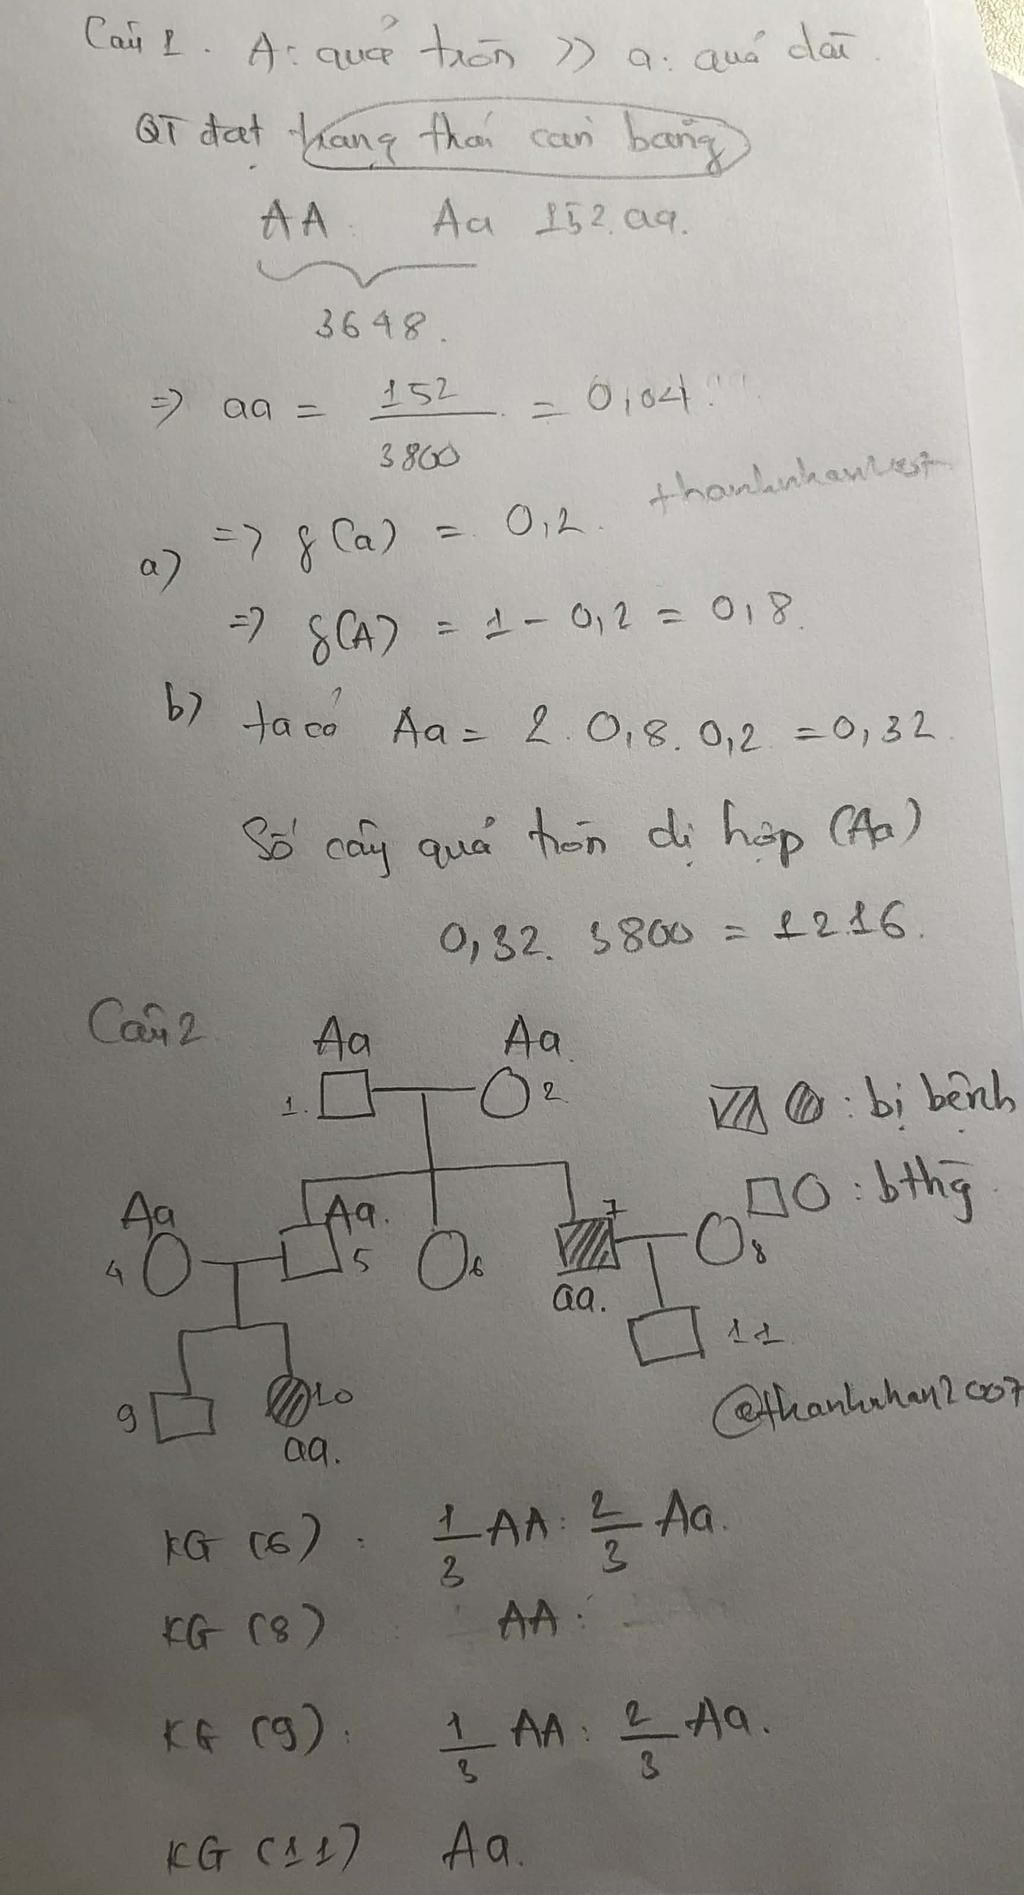 Câu 1. A: quả tròn >> a: quả dài.
QT đạt trạng thái cân bằng
AA : Aa 152 aa.
3648.
=> aa = 152 / 3800 = 0,04.
thanhnhan2007
a) => f(a) = 0,2.
=> f(A) = 1 - 0,2 = 0,8.
b) ta có Aa = 2. 0,8. 0,2 = 0,32.
Số cây quả tròn dị hợp (Aa)
0,32. 3800 = 1216.
Câu 2
Aa Aa.
1. 2
: bị bệnh
: bthg
Aa Aa. 7
4 5 6 8
aa.
11
9 10
aa.
@thanhnhan2007
KG (6) : 1/3 AA : 2/3 Aa.
KG (8) AA :
KG (9) : 1/3 AA : 2/3 Aa.
KG (11) Aa.